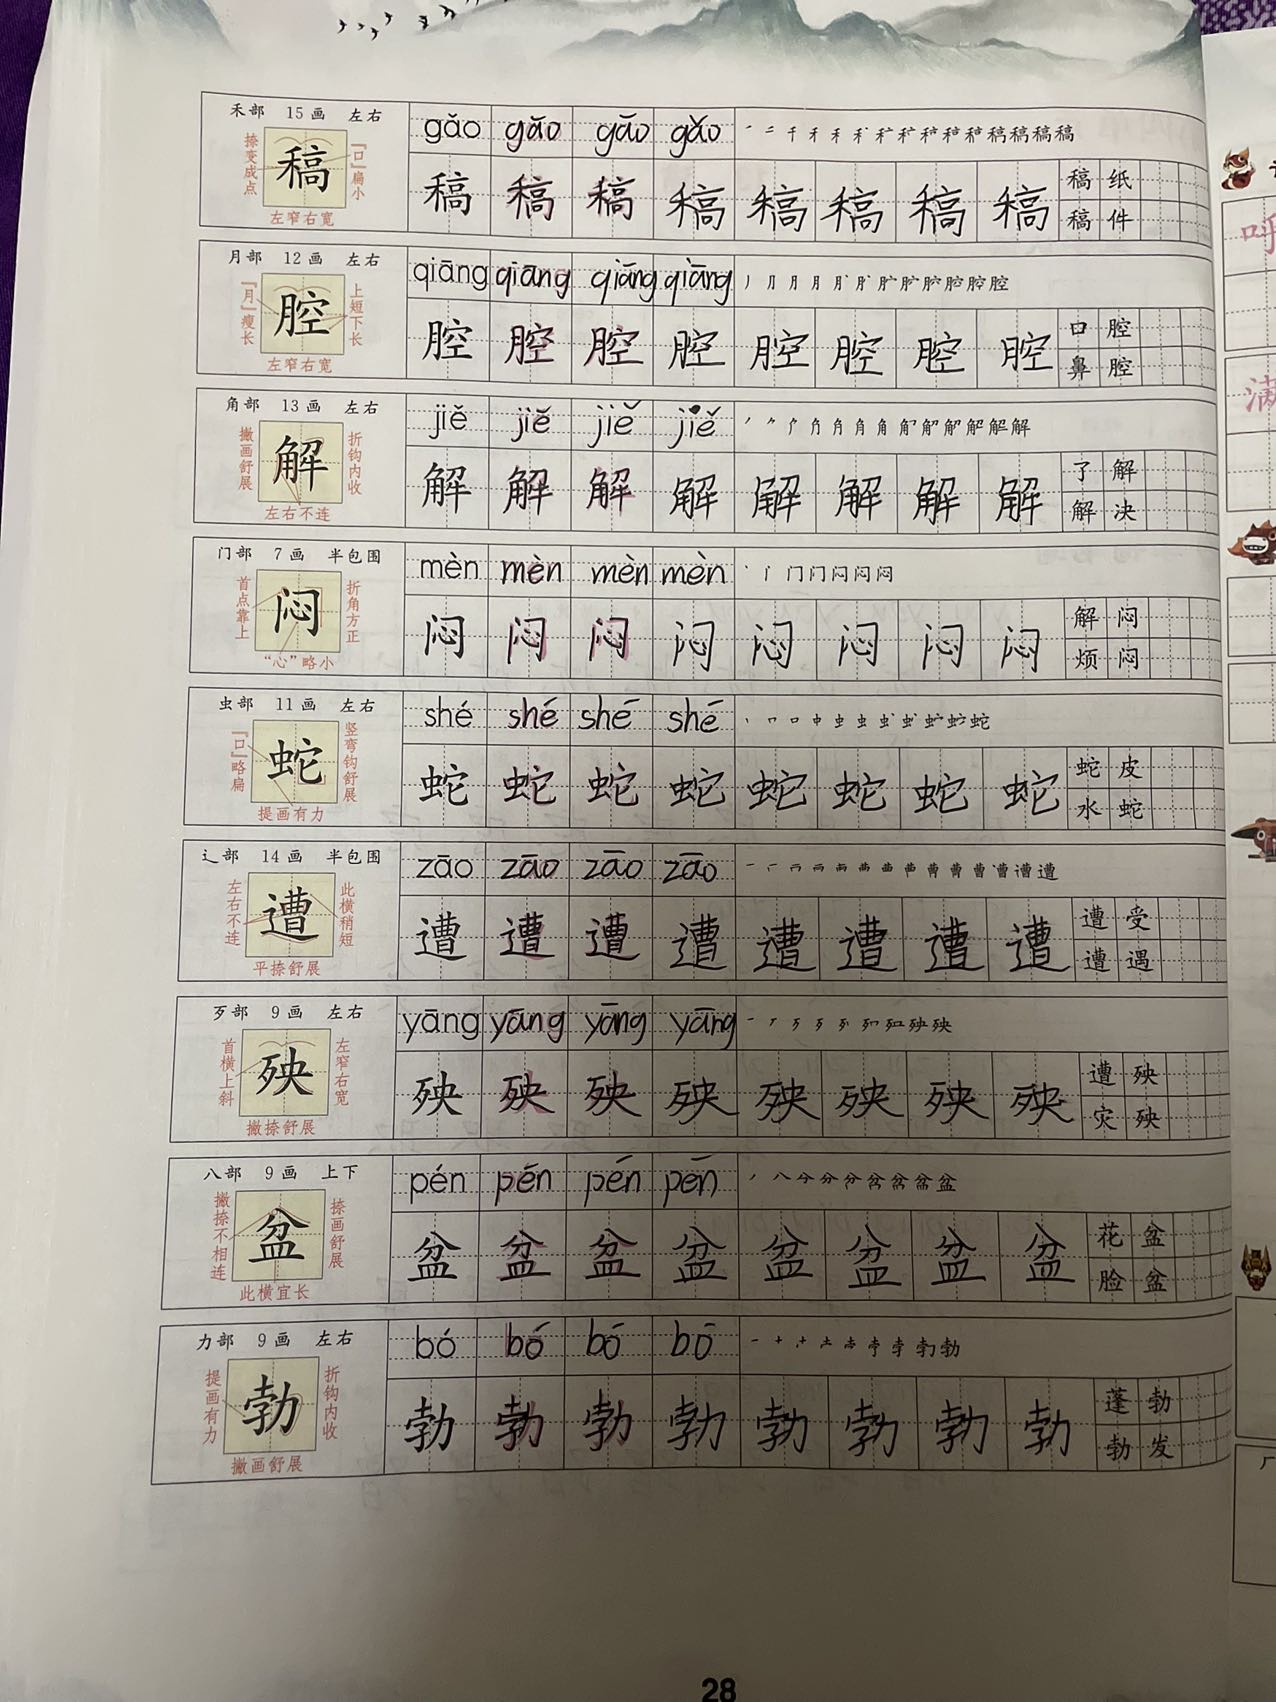 禾部 15画 左右
捺变成点
稿
「口」扁小
左窄右宽
gǎo gāo gāo gǎo
稿 稿 稿 稿 稿 稿 稿 稿
稿纸
稿件
月部 12画 左右
「月」瘦长
腔
上短下长
左窄右宽
qiāng qiāng qiāng qiāng
腔 腔 腔 腔 腔 腔 腔 腔
口腔
鼻腔
角部 13画 左右
撇画舒展
解
折钩内收
左右不连
jiě jiě jiě jiě
解 解 解 解 解 解 解 解
了解
解决
门部 7画 半包围
首点靠上
闷
折角方正
“心”略小
mèn mèn mèn mèn
闷 闷 闷 闷 闷 闷 闷 闷
解闷
烦闷
虫部 11画 左右
「口」略扁
蛇
竖弯钩舒展
提画有力
shé shé shé shé
蛇 蛇 蛇 蛇 蛇 蛇 蛇 蛇
蛇皮
水蛇
辶部 14画 半包围
左右不连
遭
此横稍短
平捺舒展
zāo zāo zāo zāo
遭 遭 遭 遭 遭 遭 遭 遭
遭受
遭遇
歹部 9画 左右
首横上斜
殃
左窄右宽
撇捺舒展
yāng yāng yāng yāng
殃 殃 殃 殃 殃 殃 殃 殃
遭殃
灾殃
八部 9画 上下
撇捺不相连
盆
捺画舒展
此横宜长
pén pén pén pēn
盆 盆 盆 盆 盆 盆 盆 盆
花盆
脸盆
力部 9画 左右
提画有力
勃
折钩内收
撇画舒展
bó bó bó bō
勃 勃 勃 勃 勃 勃 勃 勃
蓬勃
勃发
28